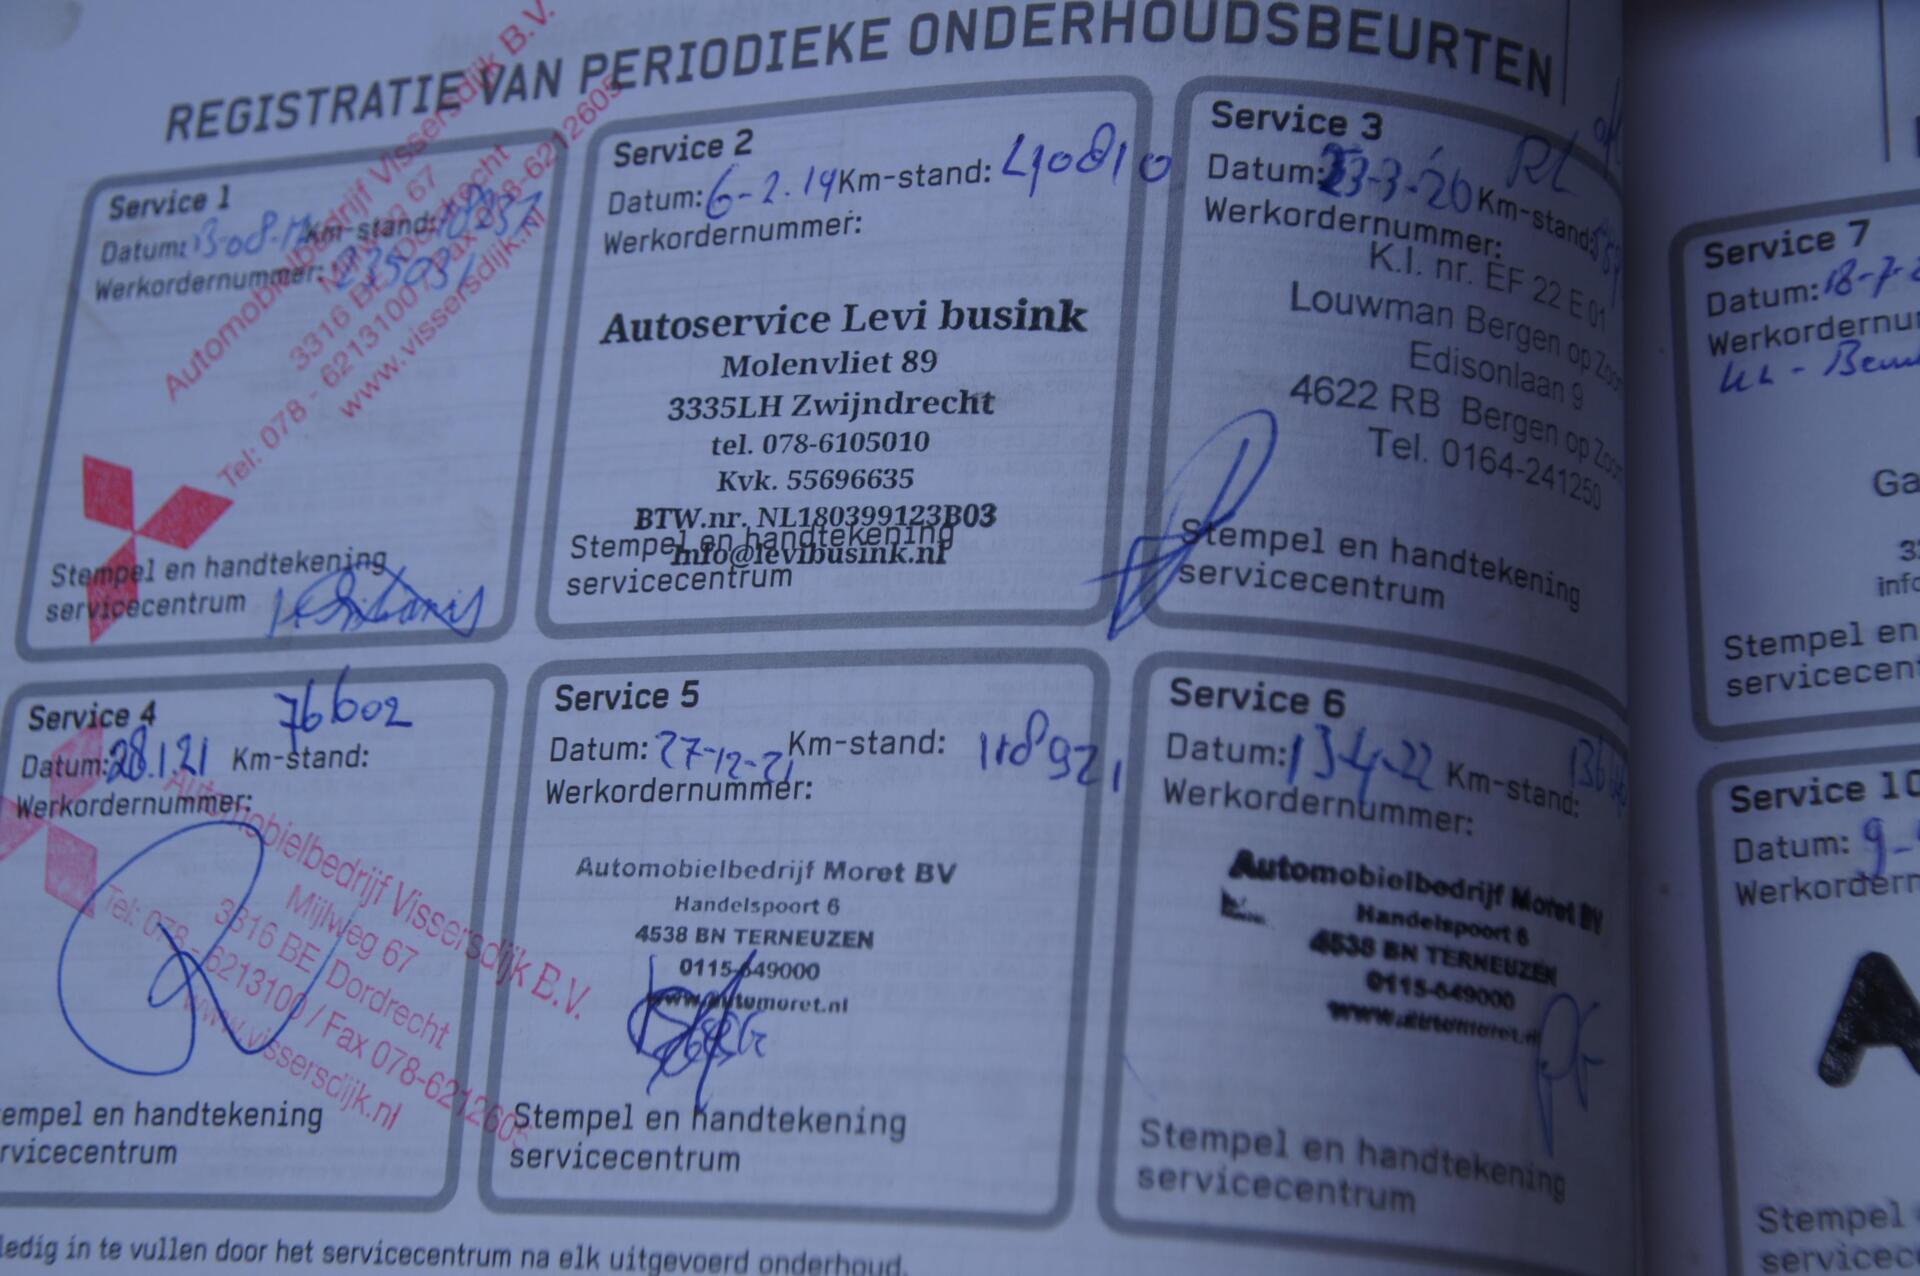 REGISTRATIE VAN PERIODIEKE ONDERHOUDSBEURTEN
Service 1
Datum: Km-stand:
Werkordernummer:
Automobielbedrijf Vissersdijk B.V.
Mijlweg 67
3316 BE Dordrecht
Tel: 078 - 6213100 / Fax 078-6212605
www.vissersdijk.nl
Stempel en handtekening
servicecentrum
Service 2
Datum: 6-2-19 Km-stand: 40810
Werkordernummer:
Autoservice Levi busink
Molenvliet 89
3335LH Zwijndrecht
tel. 078-6105010
Kvk. 55696635
BTW.nr. NL180399123B03
info@levibusink.nl
Stempel en handtekening
servicecentrum
Service 3
RL
Datum: 23-3-'20 Km-stand:
Werkordernummer:
K.I. nr. EF 22 E 01
Louwman Bergen op Zoom
Edisonlaan 9
4622 RB Bergen op Zoom
Tel. 0164-241250
Stempel en handtekening
servicecentrum
Service 4
76602
Datum: 28.1.21 Km-stand:
Werkordernummer:
Automobielbedrijf Vissersdijk B.V.
Mijlweg 67
3316 BE Dordrecht
Tel: 078 - 6213100 / Fax 078-6212605
www.vissersdijk.nl
tempel en handtekening
rvicecentrum
Service 5
Datum: 27-12-21 Km-stand: 118921
Werkordernummer:
Automobielbedrijf Moret BV
Handelspoort 6
4538 BN TERNEUZEN
0115-649000
www.automoret.nl
Stempel en handtekening
servicecentrum
Service 6
Datum: 13-4-22 Km-stand:
Werkordernummer:
Automobielbedrijf Moret BV
Handelspoort 6
4538 BN TERNEUZEN
0115-649000
www.automoret.nl
Stempel en handtekening
servicecentrum
ledig in te vullen door het servicecentrum na elk uitgevoerd onderhoud.
Service 7
Datum: 18-7-
Werkordernu
Ga
info
Stempel en
servicecent
Service 10
Datum: 9-
Werkordern
A
Stempel
servicec